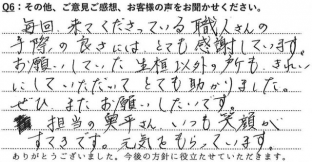 Q6：その他、ご意見ご感想、お客様の声をお聞かせください。
毎回来てくださっている職人さんの
手際の良さには、とても感謝しています。
お願いしていた生垣以外の所も、きれい
にしていただいてとても助かりました。
ぜひまたお願いしたいです。
担当の奥平さん、いつも笑顔が
すてきです。元気をもらっています。
ありがとうございました。今後の方針に役立たせていただきます。